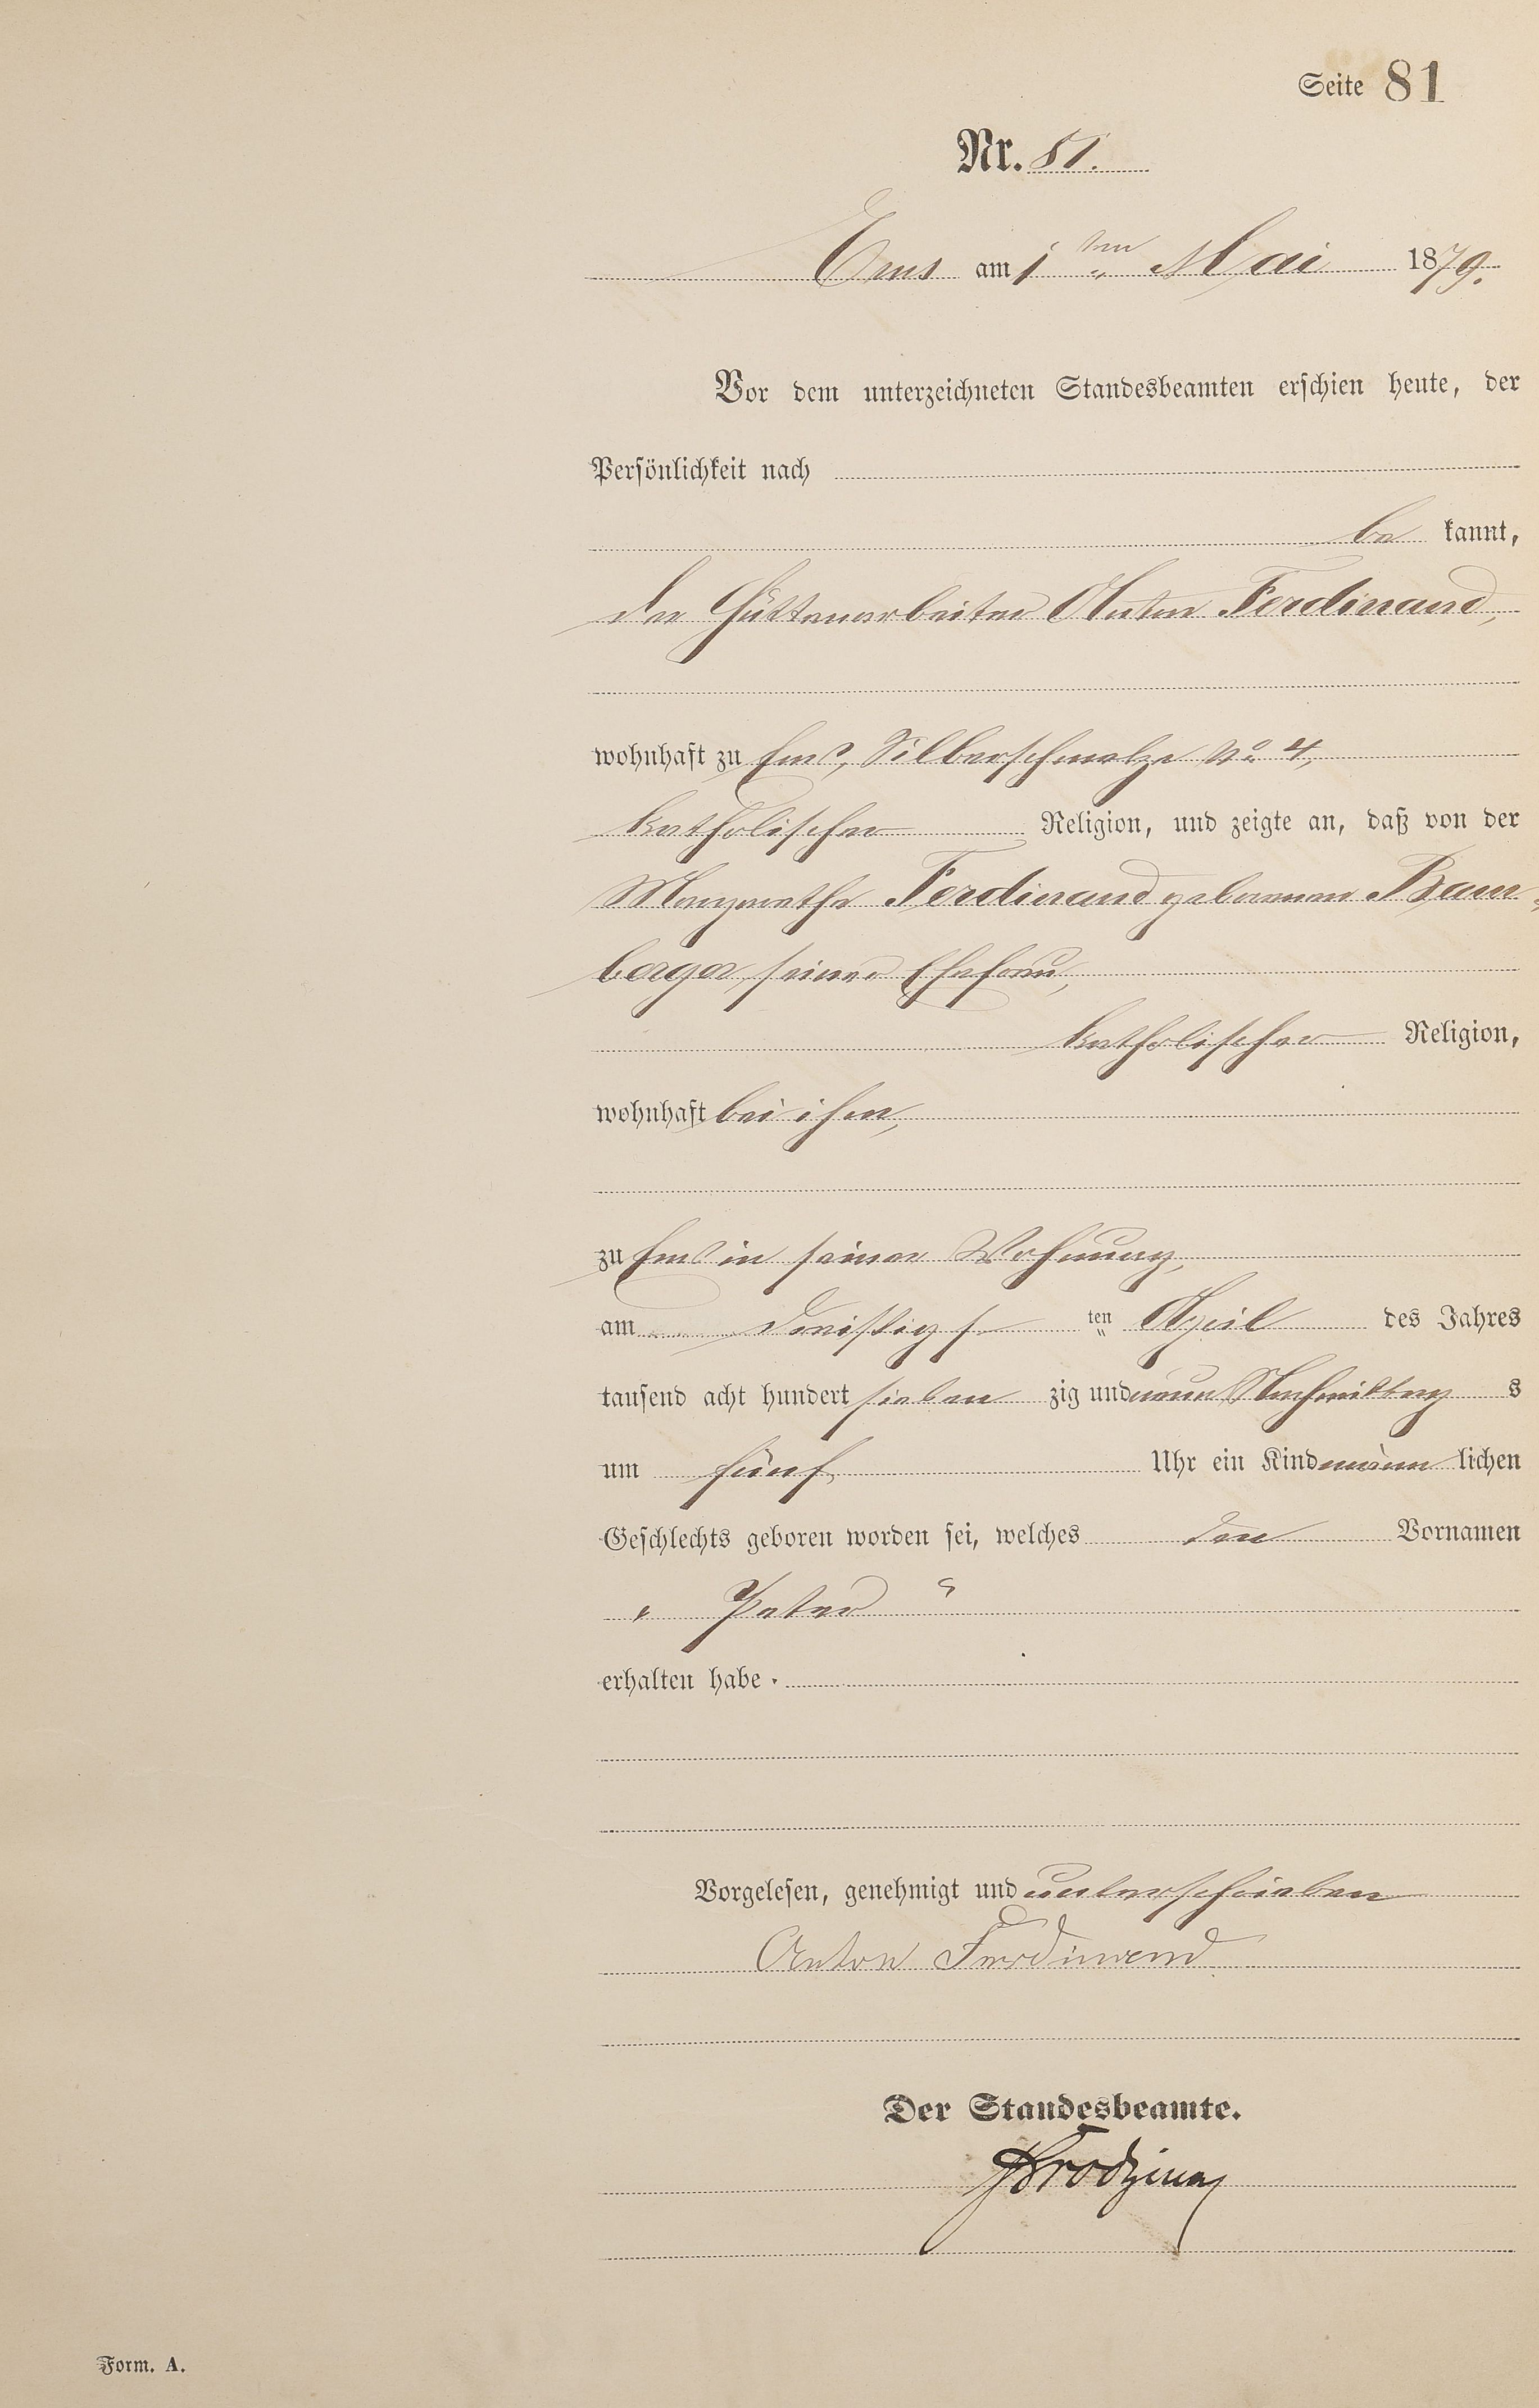 Seite 81
Nr. 81.
Ems am 1ten Mai 1879.
Vor dem unterzeichneten Standesbeamten erschien heute, der
Persönlichkeit nach
be kannt,
der Hüttenarbeiter Anton Ferdinand,
wohnhaft zu Ems, Silberschmelze No 4,
katholischer Religion, und zeigte an, daß von der
Margarethe Ferdinand geborenen Bam-
berger, seiner Ehefrau,
katholischer Religion,
wohnhaft bei ihm,
zu Ems in seiner Wohnung,
am dreißigs ten April des Jahres
tausend acht hundert sieben zig und neun Nachmittag s
um fünf Uhr ein Kind männ lichen
Geschlechts geboren worden sei, welches den Vornamen
„ Peter “
erhalten habe.
Vorgelesen, genehmigt und unterschrieben
Anton Ferdinand
Der Standesbeamte.
Form. A.